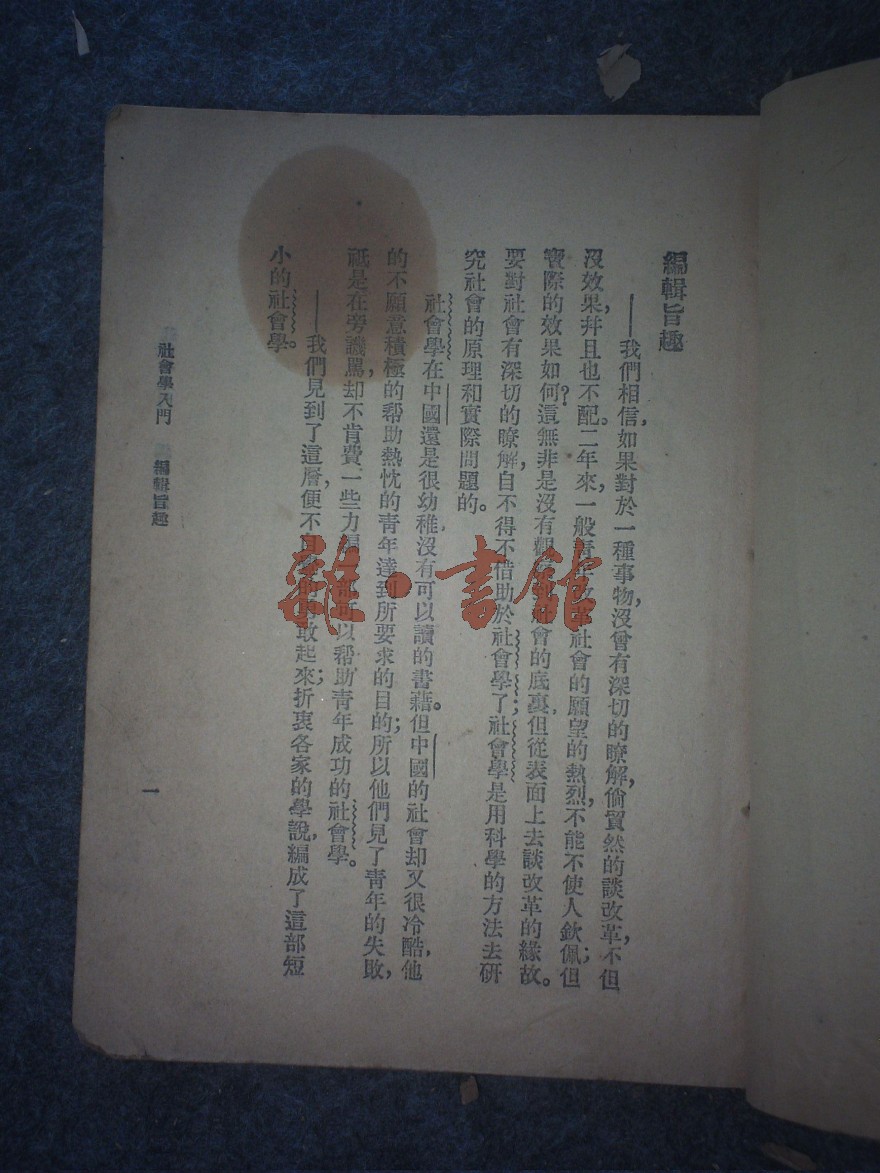 編輯旨趣
——我們相信，如果對於一種事物，沒曾有深切的瞭解，倘貿然的談改革，不但
沒效果，幷且也不配。二年來，一般靑年改革社會的願望的熱烈，不能不使人欽佩；但
實際的效果如何？這無非是沒有觀社會的底裏，但從表面上去談改革的緣故。
要對社會有深切的瞭解，自不得不借助於社會學了；社會學是用科學的方法去研
究社會的原理和實際問題的。
社會學在中國還是很幼稚，沒有可以讀的書藉。但中國的社會却又很冷酷，他
的不願意積極的幫助熱忱的靑年達到所要求的目的；所以他們見了靑年的失敗，
祇是在旁譏駡，却不肯費一些力編一部可以幫助靑年成功的社會學。
——我們見到了這層，便不自的敢起來，折衷各家的學說，編成了這部短
小的社會學。
社會學入門 編輯旨趣
一
雜·書館